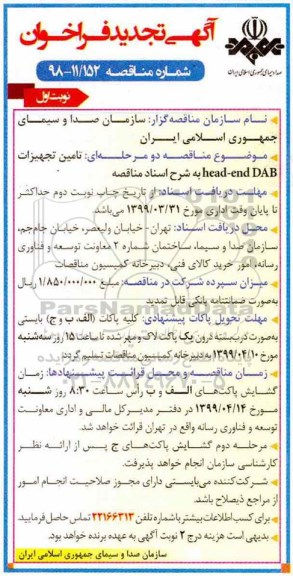 آگهی تجدید فراخوان
شماره مناقصه ۱۱/۱۵۲-۹۸
صدا و سیمای جمهوری اسلامی ایران
نوبت اول
نام سازمان مناقصه‌گزار: سازمان صدا و سیمای
جمهوری اسلامی ایران
موضوع مناقصه دو مرحله‌ای: تامین تجهیزات
head-end DAB به شرح اسناد مناقصه
مهلت دریافت اسناد: از تاریخ چاپ نوبت دوم حداکثر
تا پایان وقت اداری مورخ ۱۳۹۹/۰۳/۳۱ می‌باشد.
محل دریافت اسناد: تهران- خیابان ولیعصر، خیابان جام‌جم،
سازمان صدا و سیما، ساختمان شماره ۲ معاونت توسعه و فناوری
رسانه، امور خرید کالای فنی، دبیرخانه کمیسیون مناقصات
میزان سپرده شرکت در مناقصه: مبلغ ۱/۸۵۰/۰۰۰/۰۰۰ ریال
به‌صورت ضمانتنامه بانکی قابل تمدید
مهلت تحویل پاکات پیشنهادی: کلیه پاکات (الف، ب و ج) بایستی
به‌صورت دربسته درون یک پاکت لاک و مهر شده تا ساعت ۱۵ روز سه‌شنبه
مورخ ۱۳۹۹/۰۴/۱۰ به دبیرخانه کمیسیون مناقصات تسلیم گردد.
زمان مناقصه و محل قرائت پیشنهادها: زمان
گشایش پاکت‌های الف و ب رأس ساعت ۸:۳۰ روز شنبه
مورخ ۱۳۹۹/۰۴/۱۴ در دفتر مدیر کل مالی و اداری معاونت
توسعه و فناوری رسانه واقع در تهران قرائت خواهد شد.
مرحله دوم گشایش پاکت‌های ج پس از ارائه نظر
کارشناسی سازمان انجام خواهد پذیرفت.
شرکت‌کننده می‌بایستی دارای مجوز صلاحیت انجام امور
از مراجع ذیصلاح باشد.
برای کسب اطلاعات بیشتر با شماره تلفن ۲۲۱۶۶۳۱۳ تماس حاصل فرمایید.
بدیهی است هزینه درج ۲ نوبت آگهی به عهده برنده خواهد بود.
سازمان صدا و سیمای جمهوری اسلامی ایران